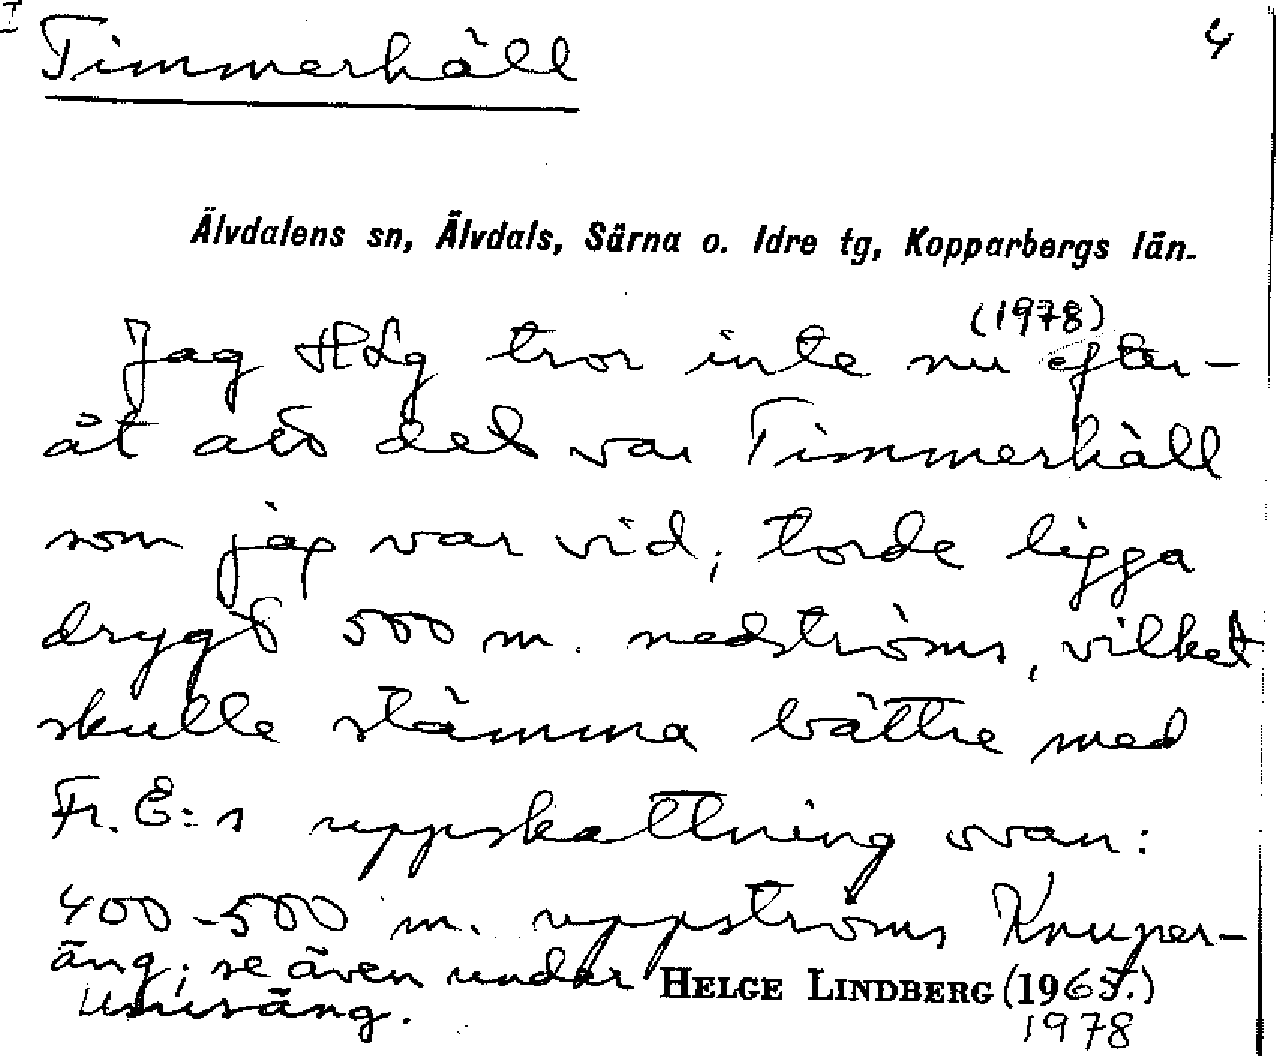 I
Timmerhäll
4
Älvdalens sn, Älvdals, Särna o. Idre tg, Kopparbergs län.
(1978)
Jag HLg tror inte nu efter-
åt att det var Timmerhäll
som jag var vid; torde ligga
drygt 500 m. nedströms, vilket
skulle stämma bättre med
Fr. E:s uppskattning ovan:
400-500 m. uppströms Knuper-
äng; se även under
HELGE LINDBERG (1965.)
1978